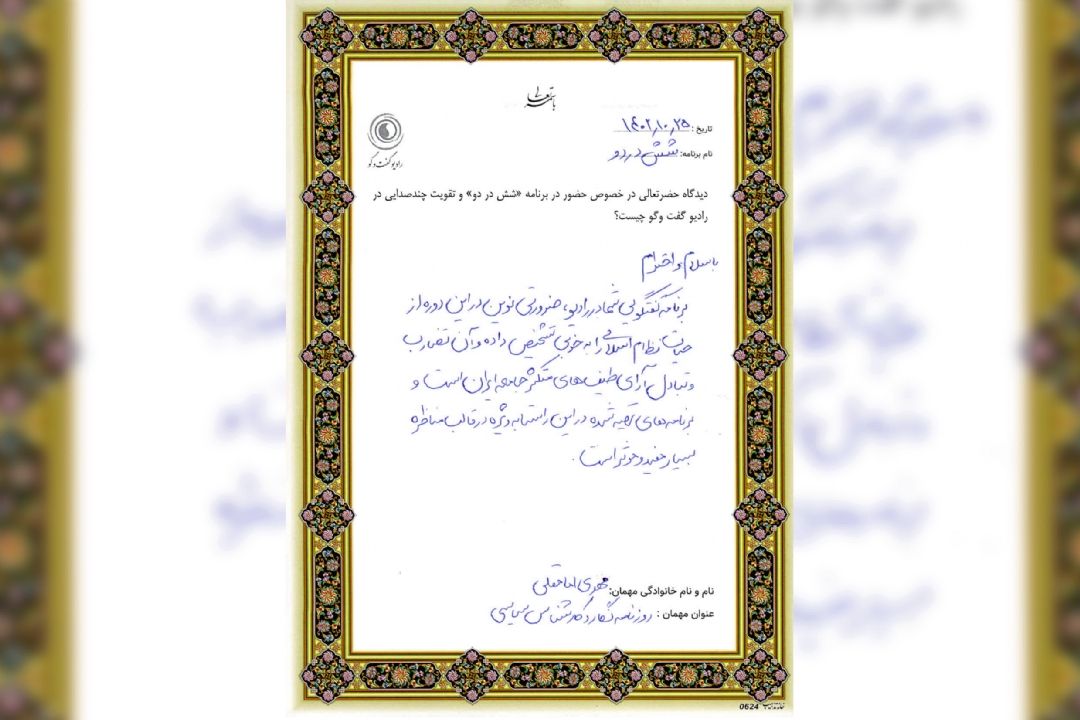 باسمه تعالی
تاریخ: ۱۴۰۲٫۱۰٫۲۵
نام برنامه: شش در دو
رادیو گفت و گو
دیدگاه حضرتعالی در خصوص حضور در برنامه «شش در دو» و تقویت چندصدایی در
رادیو گفت وگو چیست؟
باسلام و احترام
برنامه گفتگویی شما در رادیو، ضرورتی نوین در این دوره از
حیات نظام اسلامی را به خوبی تشخیص داده و آن تضارب
و تبادل آرای طیف های متکثر جامعه ایران است و
برنامه های تهیه شده در این راستا به ویژه در قالب مناظره
بسیار مفید و موثر است.
نام و نام خانوادگی مهمان: مهدی امامقلی
عنوان مهمان : روزنامه نگار و کارشناس سیاسی
0624